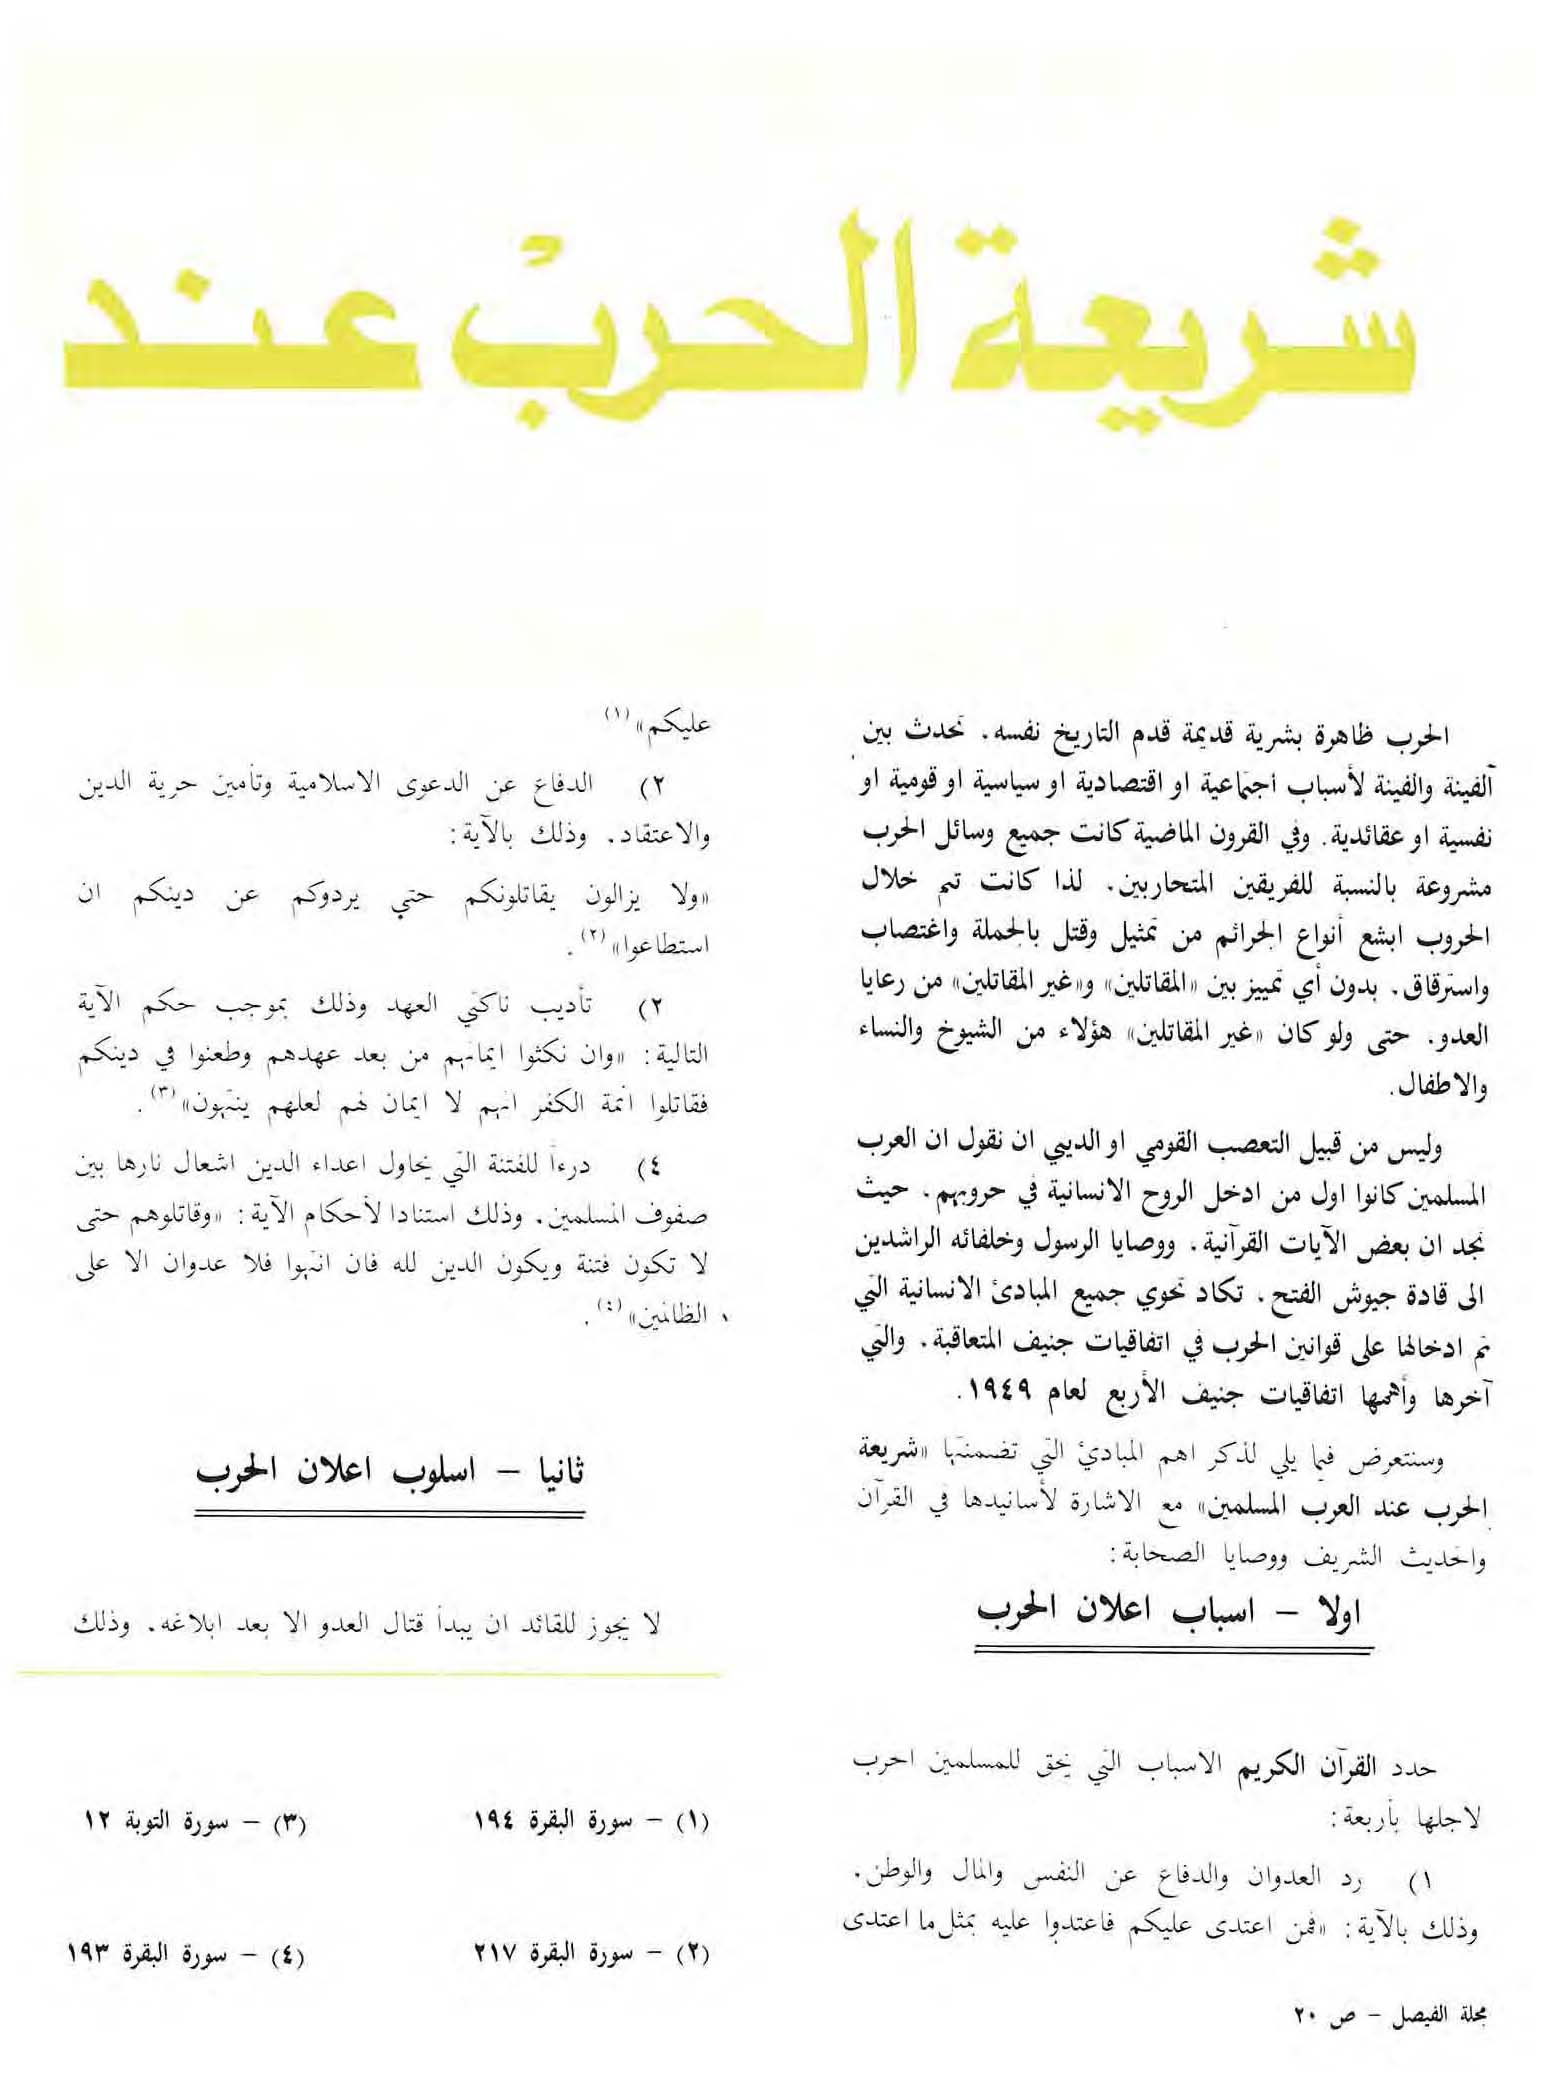 شريعة الحرب عند
الحرب ظاهرة بشرية قديمة قدم التاريخ نفسه. تحدث بين
الفينة والفينة لأسباب اجتماعية او اقتصادية او سياسية او قومية او
نفسية او عقائدية. وفي القرون الماضية كانت جميع وسائل الحرب
مشروعة بالنسبة للفريقين المتحاربين. لذا كانت تتم خلال
الحروب ابشع أنواع الجرائم من تمثيل وقتل بالجملة واغتصاب
واسترقاق. بدون أي تمييز بين «المقاتلين» و«غير المقاتلين» من رعايا
العدو. حتى ولو كان «غير المقاتلين» هؤلاء من الشيوخ والنساء
والاطفال.
وليس من قبيل التعصب القومي او الديني ان نقول ان العرب
المسلمين كانوا اول من ادخل الروح الانسانية في حروبهم. حيث
نجد ان بعض الآيات القرآنية. ووصايا الرسول وخلفائه الراشدين
الى قادة جيوش الفتح. تكاد تحوي جميع المبادئ الانسانية التي
تم ادخالها على قوانين الحرب في اتفاقيات جنيف المتعاقبة. والتي
آخرها وأهمها اتفاقيات جنيف الأربع لعام ١٩٤٩.
وسنتعرض فيما يلي لذكر اهم المبادئ التي تضمنتها «شريعة
الحرب عند العرب المسلمين» مع الاشارة لأسانيدها في القرآن
والحديث الشريف ووصايا الصحابة:
اولا – اسباب اعلان الحرب
حدد القرآن الكريم الاسباب التي يحق للمسلمين الحرب
لاجلها بأربعة:
١) رد العدوان والدفاع عن النفس والمال والوطن.
وذلك بالآية: «فمن اعتدى عليكم فاعتدوا عليه بمثل ما اعتدى
عليكم» (١)
٢) الدفاع عن الدعوى الاسلامية وتأمين حرية الدين
والاعتقاد. وذلك بالآية:
«ولا يزالون يقاتلونكم حتي يردوكم عن دينكم ان
استطاعوا» (٢).
٢) تأديب ناكثي العهد وذلك بموجب حكم الآية
التالية: «وان نكثوا ايمانهم من بعد عهدهم وطعنوا في دينكم
فقاتلوا ائمة الكفر انهم لا ايمان لهم لعلهم ينتهون» (٣).
٤) درءاً للفتنة التي يحاول اعداء الدين اشعال نارها بين
صفوف المسلمين. وذلك استنادا لأحكام الآية: «وقاتلوهم حتى
لا تكون فتنة ويكون الدين لله فان انتهوا فلا عدوان الا على
الظالمين» (٤).
ثانيا – اسلوب اعلان الحرب
لا يجوز للقائد ان يبدأ قتال العدو الا بعد ابلاغه. وذلك
(١) – سورة البقرة ١٩٤
(٢) – سورة البقرة ٢١٧
(٣) – سورة التوبة ١٢
(٤) – سورة البقرة ١٩٣
مجلة الفيصل – ص ٢٠